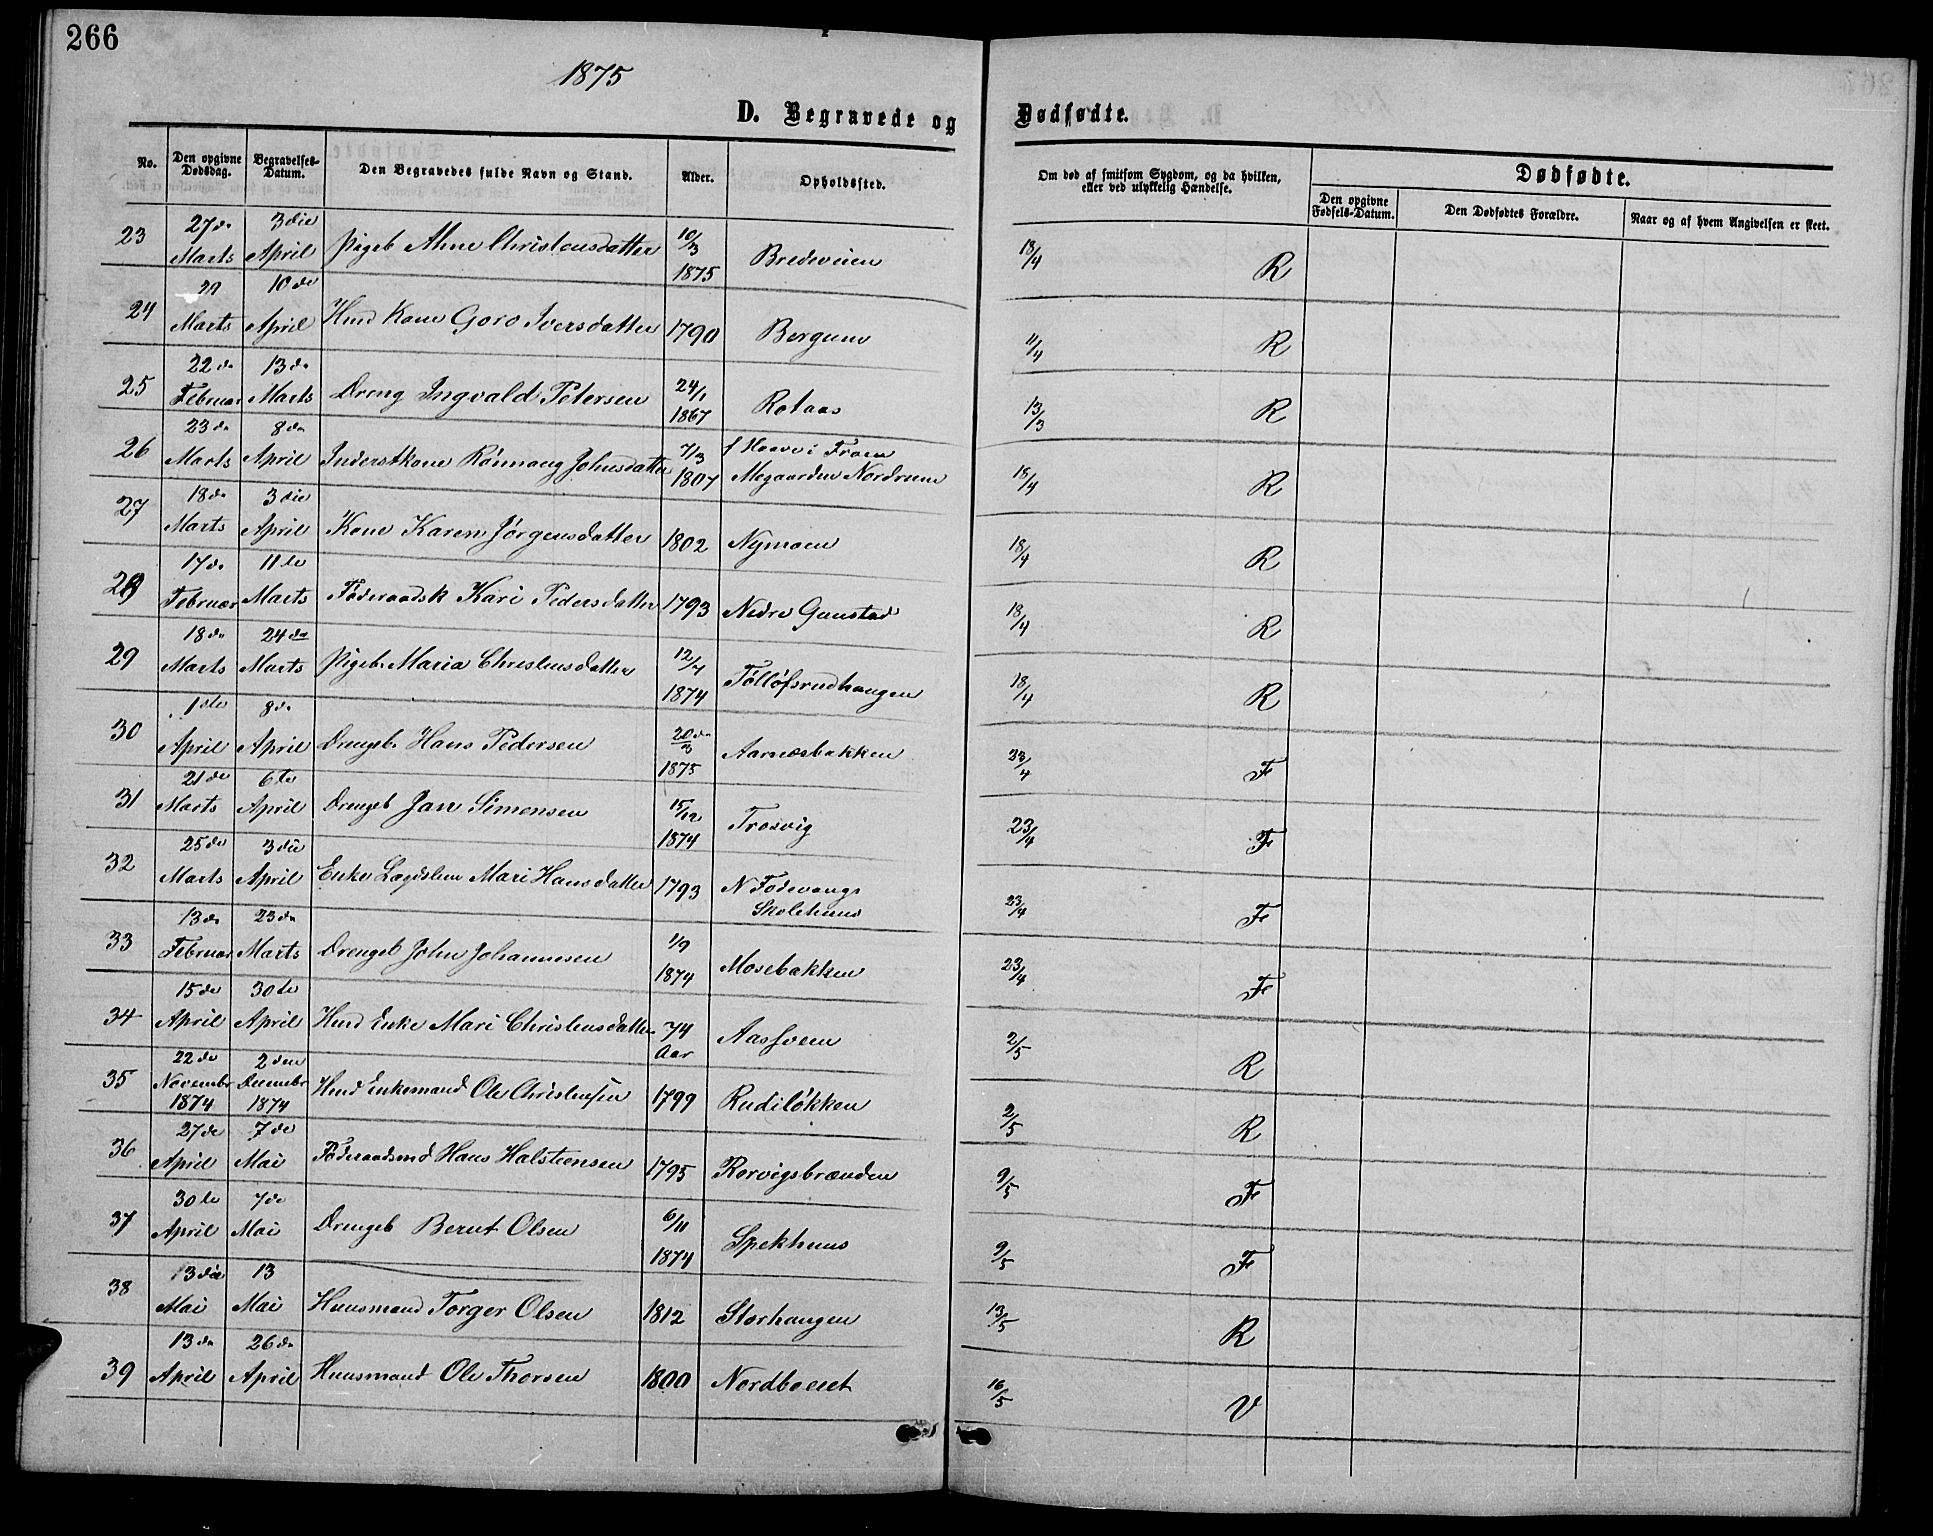 266
1875
D. Begravede og Dødfødte.
No. Den opgivne Dødsdag. Begravelses-Datum. Den Begravedes fulde Navn og Stand. Alder. Opholdssted. Om død af smitsom Sygdom, og da hvilken, eller ved ulykkelig Hændelse. Dødfødte.
Den opgivne Fødsels-Datum. Den Dødfødtes Forældre. Naar og af hvem Angivelsen er skeet.
23 27de Marts 3die April Pigeb Ahne Christensdatter 10/3 1875 Bredeveien 18/4 R
24 29 Marts 10de April Huusd Kone Goro Iversdatter 1790 Bergum 11/4 R
25 22de Februar 13de Marts Dreng Ingvald Petersen 24/1 1867 Rotaas 13/3 R
26 23de Marts 8de April Inderstkone Rönnaug Johnsdatter 7/3 1807 f Haave i Froen Megaarden Nordrum 18/4 R
27 18de Marts 3die April Kone Karen Jørgensdatter 1802 Nymoen 18/4 R
28 17de Februar 11te Marts Föderaadsk Kari Pedersdatter 1793 Nedre Gunstad 18/4 R
29 18de Marts 24de Marts Pigeb. Maria Christensdatter 12/4 1874 Tölløfsrudhaugen 18/4 R
30 1ste April 8de April Drengeb. Hans Pedersen 20de/3 1875 Aarnæsbakken 23/4 F
31 21de Marts 6te April Drengeb Jan Simensen 15/12 1874 Trosvig 23/4 F
32 25de Marts 3die April Enke Lægdslem Mari Hansdatter 1793 N Fodevangs Skolehuus 23/4 F
33 13de Februar 23de Marts Drengeb John Johannesen 1/9 1874 Mosebakken 23/4 F
34 15de April 30te April Huusd Enke Mari Christensdatter 74 Aar Aassveen 2/5 R
35 22de Novembr 1874 2den Decembr 1874 Huusd Enkemand Ole Christensen 1799 Rudiløkken 2/5 R
36 27de April 7de Mai Föderaadsmd Hans Halsteensen 1795 Rorvigsbrænden 9/5 F
37 30te April 7de Mai Drengeb Bernt Olsen 6/11 1874 Spekhuus 9/5 F
38 13die Mai 13 Mai Huusmand Torger Olsen 1812 Storhaugen 13/5 R
39 13de April 26de April Huusmand Ole Thorsen 1800 Nordboeret 16/5 V